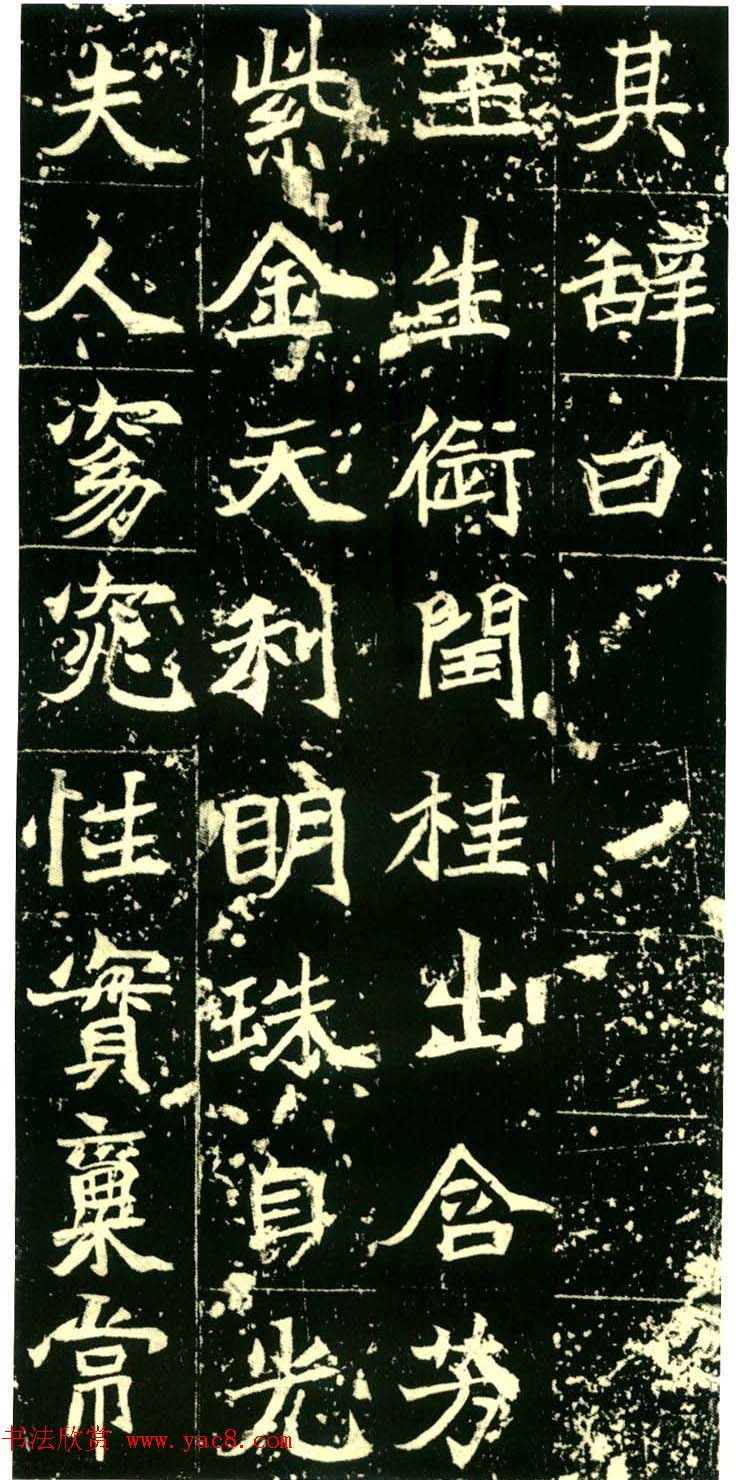 其辞白
玉生衘閏桂出含芳
紫金天利眀珠自光
夫人窈窕性實稟常
书法欣赏 www.yac8.com